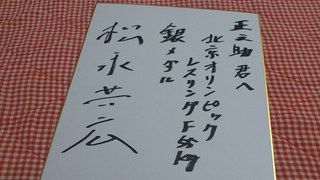 正之助君へ
北京オリンピック
レスリングF55kg
銀メダル
松永共広